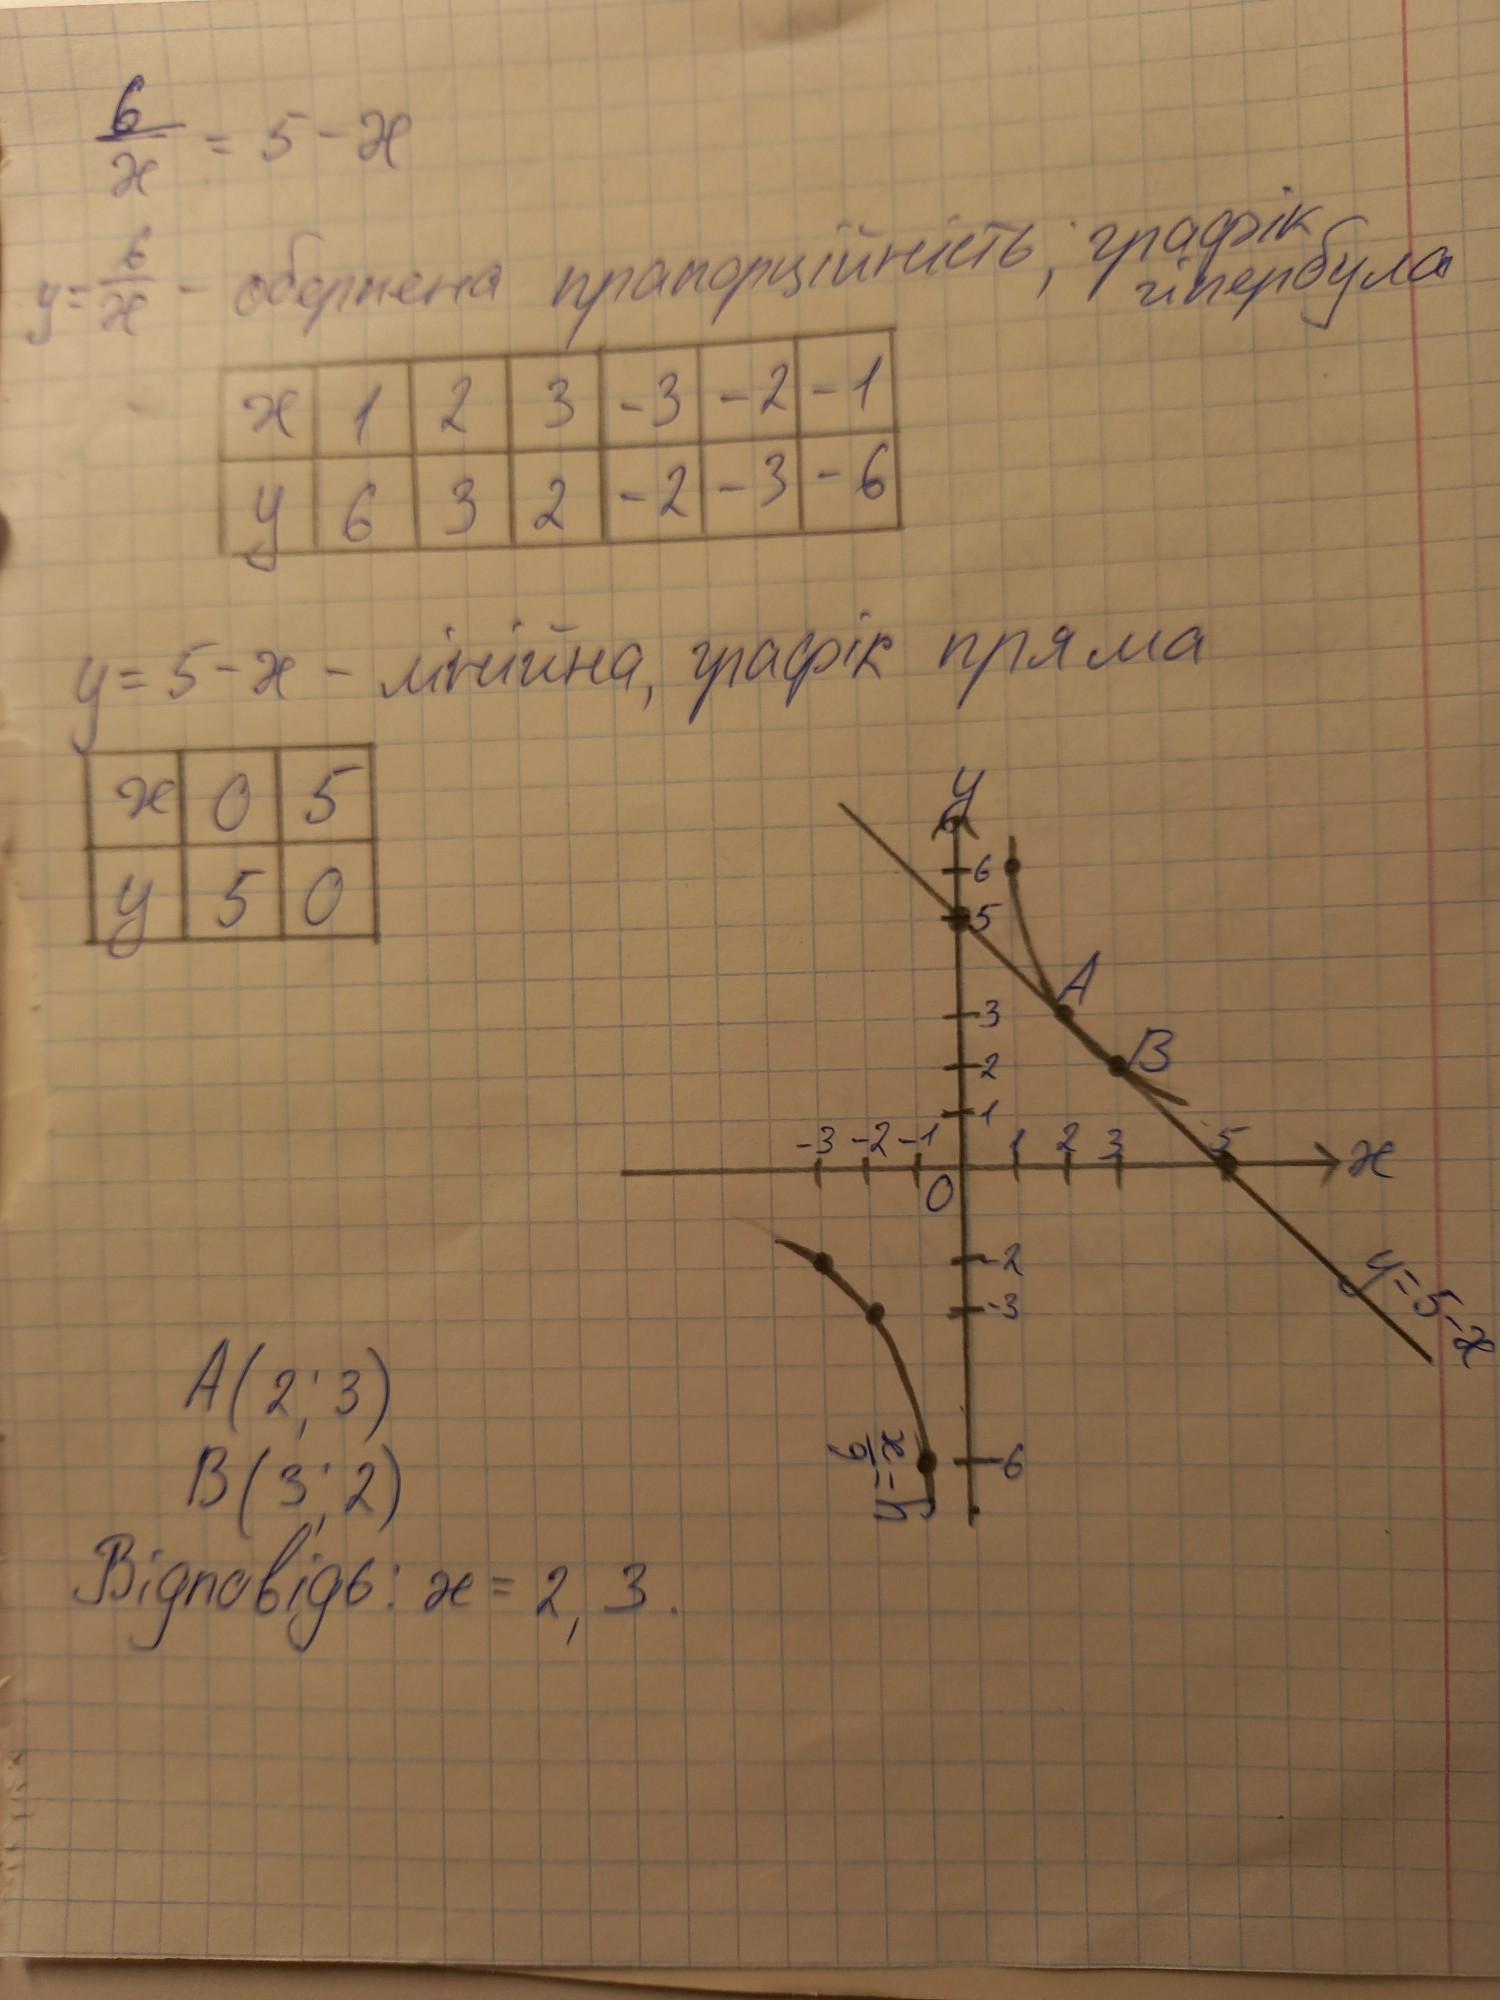 6/x = 5 - x
y = 6/x - обернена пропорційність, графік
гіпербула
x 1 2 3 -3 -2 -1
y 6 3 2 -2 -3 -6
y = 5 - x - лінійна, графік пряма
x 0 5
y 5 0
y
6
5
A
3
B
2
1
-3 -2 -1 0 1 2 3 5 x
-2
-3
y = 5 - x
-6
y = 6/x
A(2; 3)
B(3; 2)
Відповідь: x = 2, 3.